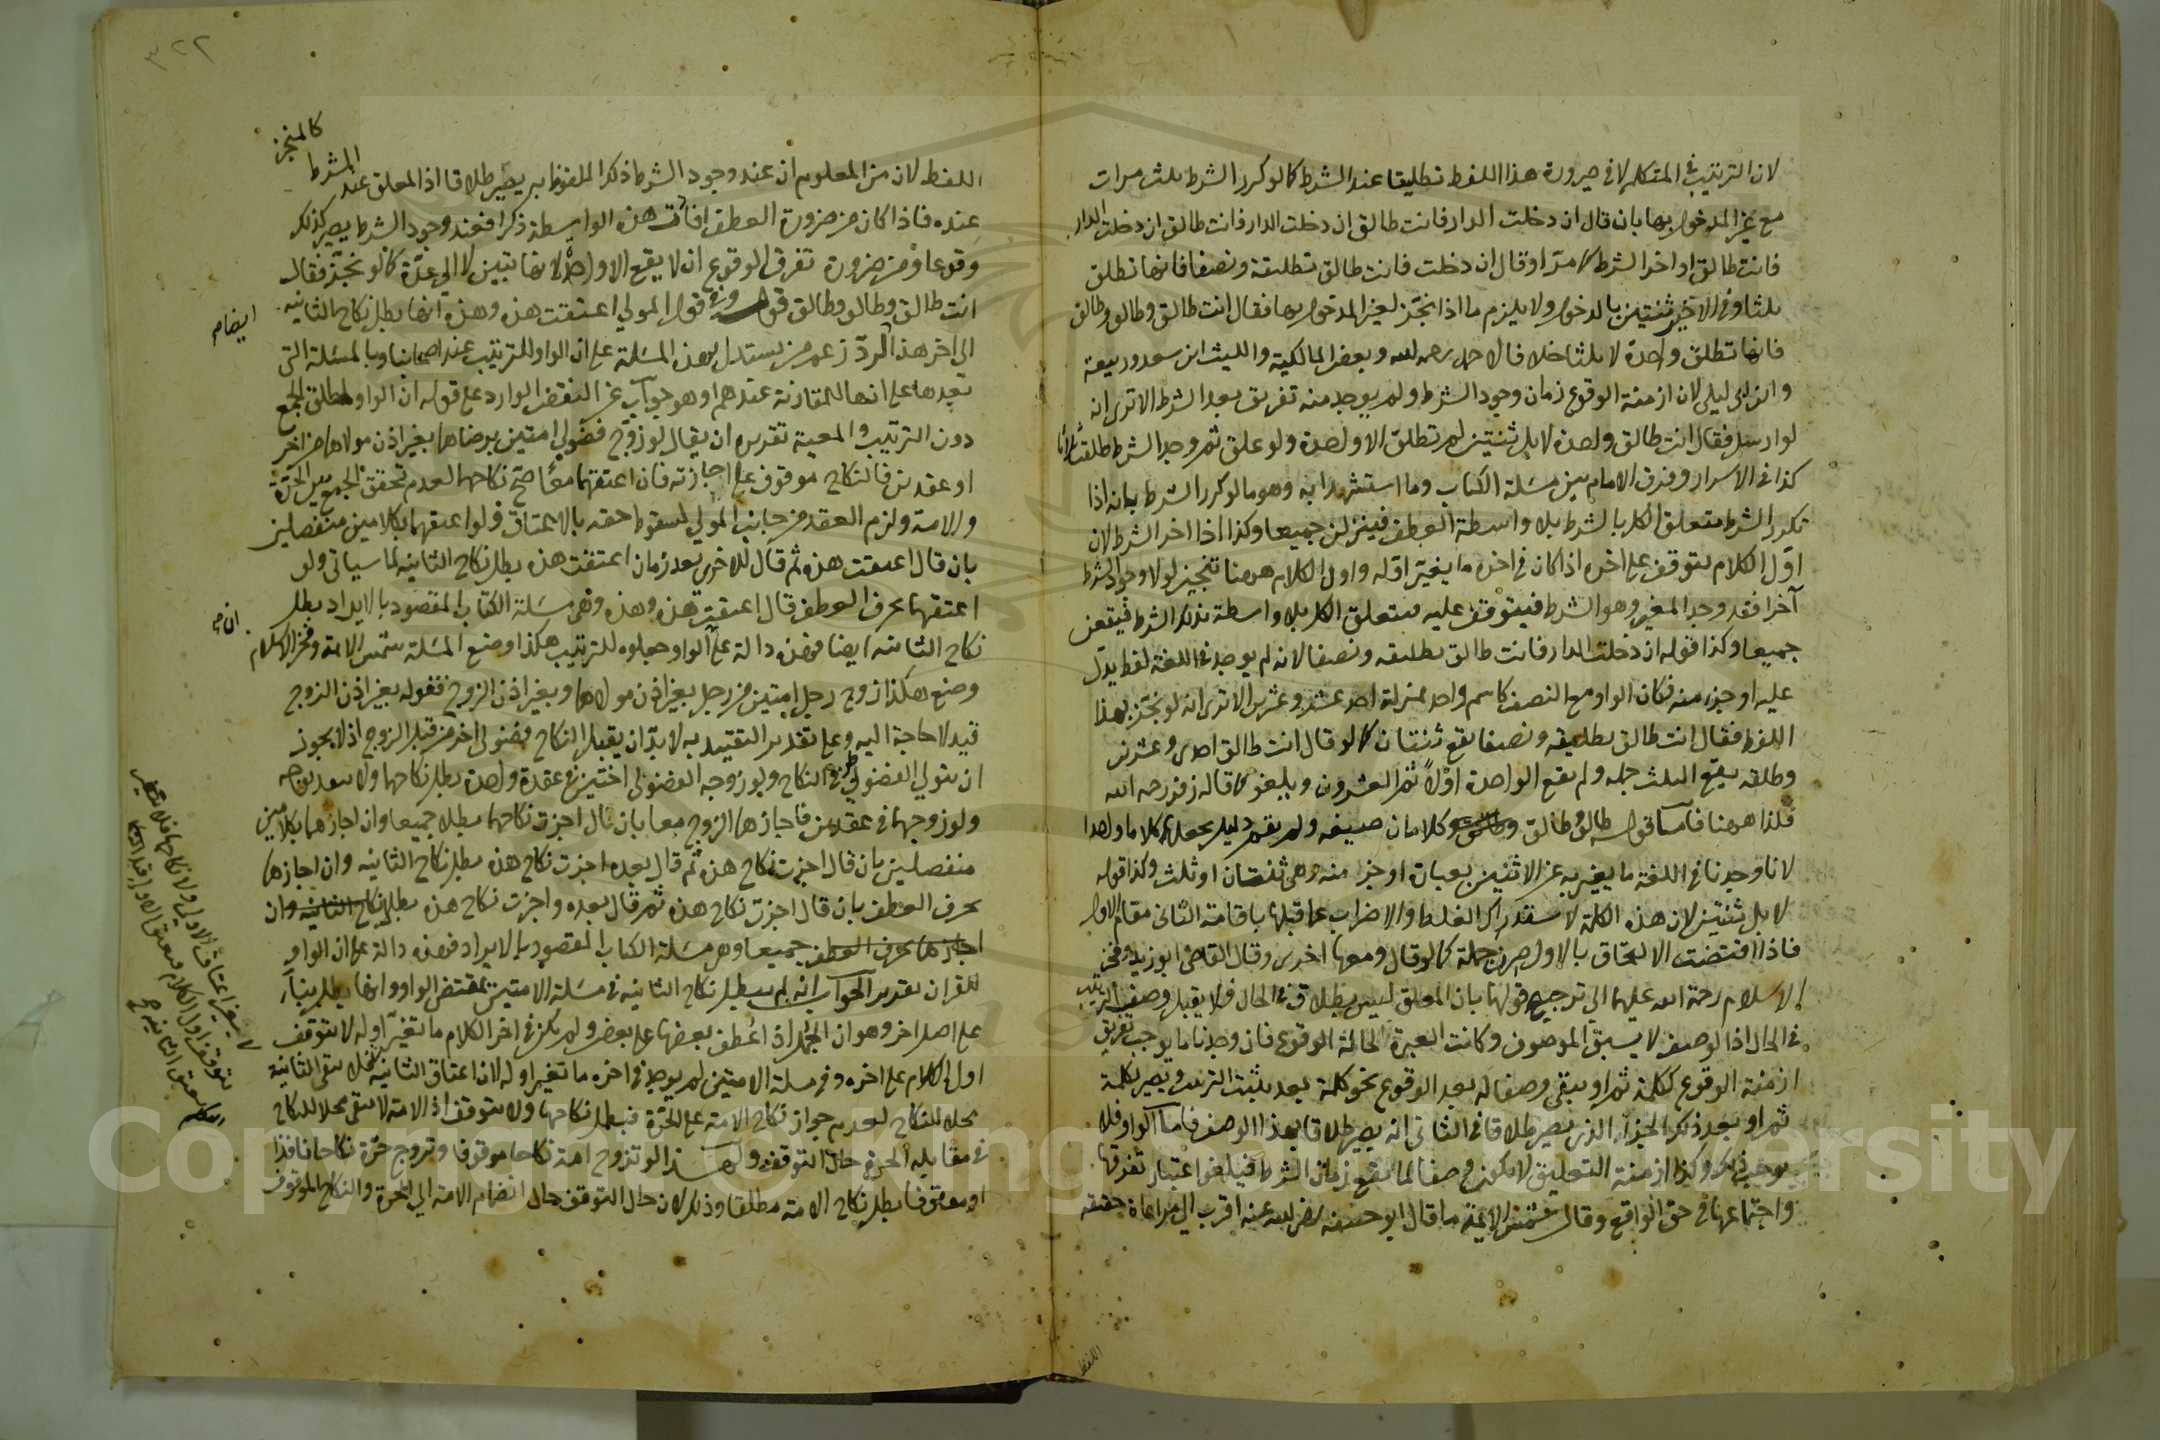 لان الترتيب في المتكلم لا في صيرورة هذا اللفظ تطليقا عند الشرط كما لو كرر الشرط ثلث مرات
مع غير المدخول بها بان قال ان دخلت الدار فانت طالق ان دخلت الدار فانت طالق ان دخلت الدار
فانت طالق او اخر الشرط كما مر او قال ان دخلت فانت طالق تطليقة ونصفا فانها تطلق
ثلثا وفي الاخير ثنتين بالدخول ولا يلزم ما اذا نجز لغير المدخول بها فقال انت طالق وطالق وطالق
فانها تطلق واحدة لا ثلثا خلافا لاحمد رحمه الله وبعض المالكية والليث ابن سعد وربيعة
وابن ابي ليلى لان ازمنة الوقوع زمان وجود الشرط ولم يوجد منه تفريق بعد الشرط الا ترى انه
لو ارسل فقال انت طالق واحدة لا بل ثنتين لم تطلق الا واحدة ولو علق ثم وجد الشرط طلقت ثلاثا
كذا في الاسرار وفرق الامام بين مسئلة الكتاب وما استشهدا به وهو ما لو كرر الشرط بانه اذا
تكرر الشرط يتعلق الكل بالشرط بلا واسطة العطف فينزلن جميعا وكذا اذا اخر الشرط لان
اول الكلام يتوقف على اخره اذا كان في اخره ما يغير اوله واول الكلام ههنا تنجيز لولا وجود الشرط
آخرا فقد وجد المغير وهو الشرط فيتوقف عليه فيتعلق الكل بلا واسطة بذلك الشرط فيقعن
جميعا وكذا قوله ان دخلت الدار فانت طالق تطليقة ونصفا لانه لم يوجد في اللغة لفظ يدل
عليه اوجز منه فكان الواو مع النصف كاسم واحد بمنزلة احد عشر وعشرين الا ترى انه لو نجز بهذا
اللفظ فقال انت طالق تطليقة ونصفا يقع ثنتان كما لو قال انت طالق احدى وعشرين
وطلقة يقع الثلث جملة ولم يقع الواحدة اولا ثم العشرون ويلغو كما قاله زفر رحمه الله
فكذا ههنا فاما قوله طالق وطالق وكلامان صيغة ولم يقم دليل يجعلهما كلاما واحدا
لانا وجدنا في اللغة ما يغير به عن الاثنين بعبارة اوجز منه وهي ثنتان او ثلث وكذا قوله
لا بل ثنتين لان هذه الكلمة لاستدراك الغلط والاضراب عما قبلها باقامة الثاني مقام الاول
فاذا اقتضت الالحاق بالاول صرن جملة كما لو قال ومعها اخرى وقال القاضي ابو زيد وفخر
الاسلام رحمة الله عليهما الى ترجيح قولهما بان المعلق ليس بطلاق في الحال فلا يقبل وصف الترتيب
في الحال اذ الوصف لا يسبق الموصوف وكانت العبرة لحالة الوقوع فان وجدنا ما يوجب تفريق
ازمنة الوقوع ككلمة ثم او يبقى وصفا له بعد الوقوع نحو كلمة بعد يثبت الترتيب ويصير بكلمة
ثم او بعد ذكر الجزاء الذي يصير طلاقا في الثاني انه يصير طلاقا بهذا الوصف فاما الواو فلا
يوجب ذلك وكذا ازمنة التعليق لا يكون وصفا لما يقع زمان الشرط فيلغو اعتبار تفرقها
واجتماعها في حق الواقع وقال شمس الائمة ما قال ابو حنيفة رضي الله عنه اقرب الى مراعاة حقيقة
اللفظ
٣٢٢
كالمنجز
الشرط
اللفظ لان من المعلوم ان عند وجود الشرط ذكر الملفوظ به يصير طلاقا اذ المعلق عند
عنده فاذا كان من ضرورة العطف اثبات هذه الواسطة ذكرا فعند وجود الشرط يصير كذلك
وقوعا ومن ضرورة تفرق الوقوع ان لا يقع الا واحدة لانها تبين لا الى عدة كما لو نجز فقال
انت طالق وطالق وطالق قوله وفي قول المولى اعتقت هذه وهذه انما بطل نكاح الثانية
ايضا صح
الى اخر هذا الرد زعم من يستدل بهذه المسئلة على ان الواو للترتيب عند اصحابنا وبالمسئلة التي
بعدها على انها للمقارنة عندهم او هو جواب عن النقض الوارد على قوله ان الواو لمطلق الجمع
دون الترتيب والمعية تقريره ان يقال لو زوج فضولي امتين برضاهما بغير اذن مولاهما من اخر
او عقدين فالنكاح موقوف على اجازته فان اعتقهما معا صح نكاحهما لعدم تحقق الجمع بين الحرة
والامة ولزم العقد من جانب المولى لسقوط حقه بالاعتاق ولو اعتقهما بكلامين منفصلين
بان قال اعتقت هذه ثم قال للاخرى بعد زمان اعتقت هذه بطل نكاح الثانية لما سياتي ولو
اعتقهما بحرف العطف قال اعتقت هذه وهذه وهي مسئلة الكتاب المقصود بالايراد بطل
ان صح
نكاح الثانية ايضا فهذه دالة على الواو جعلوه للترتيب هكذا وضع المسئلة شمس الائمة وفخر الاسلام
وضع هكذا زوج رجل امتين من رجل بغير اذن مولاهما وبغير اذن الزوج فقوله بغير اذن الزوج
قيد لا حاجة اليه وعلى تقدير التقييد به لا بد ان يقبل النكاح فضولي اخر من قبل الزوج اذ لا يجوز
ان يتولى الفضولي طرفي النكاح ولو زوجه الفضولي اختين في عقدة واحدة بطل نكاحهما ولا ينعقد بوجه
ولو زوجهما في عقدين فاجازهما الزوج معا بان قال اجزت نكاحهما بطلا جميعا وان اجازهما بكلامين
منفصلين بان قال اجزت نكاح هذه ثم قال بعده اجزت نكاح هذه بطل نكاح الثانية وان اجازهما
بحرف العطف بان قال اجزت نكاح هذه ثم قال بعده واجزت نكاح هذه بطل نكاح الثانية وان
اجازهما بحرف العطف جميعا وهو مسئلة الكتاب المقصود بالايراد فهذه دالة على ان الواو
للقران تقرير الجواب انه لم يبطل نكاح الثانية في مسئلة الامتين بمقتضى الواو وانما بطل بناء
على اصل اخر وهو ان الجمل اذا عطف بعضها على بعض ولم يكن في اخر الكلام ما يغير اوله لا يتوقف
اول الكلام على اخره وفي مسئلة الامتين لم يوجد في اخره ما يغير اوله لان اعتاق الثانية فلا يبقى الثانية
محلا للنكاح لعدم جواز نكاح الامة على الحرة فبطل نكاحها ولا يتوقف اذ الامة لا تبقى محلا للنكاح
في مقابلة الحرة حال التوقف ولهذا لو تزوج امة نكاحا موقوفا وتزوج حرة نكاحا نافذا
او موقوفا بطل نكاح الامة مطلقا وذلك لان حال التوقف حال انضمام الامة الى الحرة والنكاح الموقوف